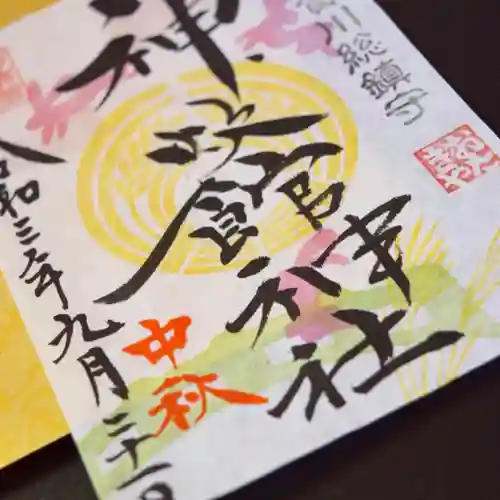 賀川総鎮守
神炊館神社
中秋
令和三年九月二十一日